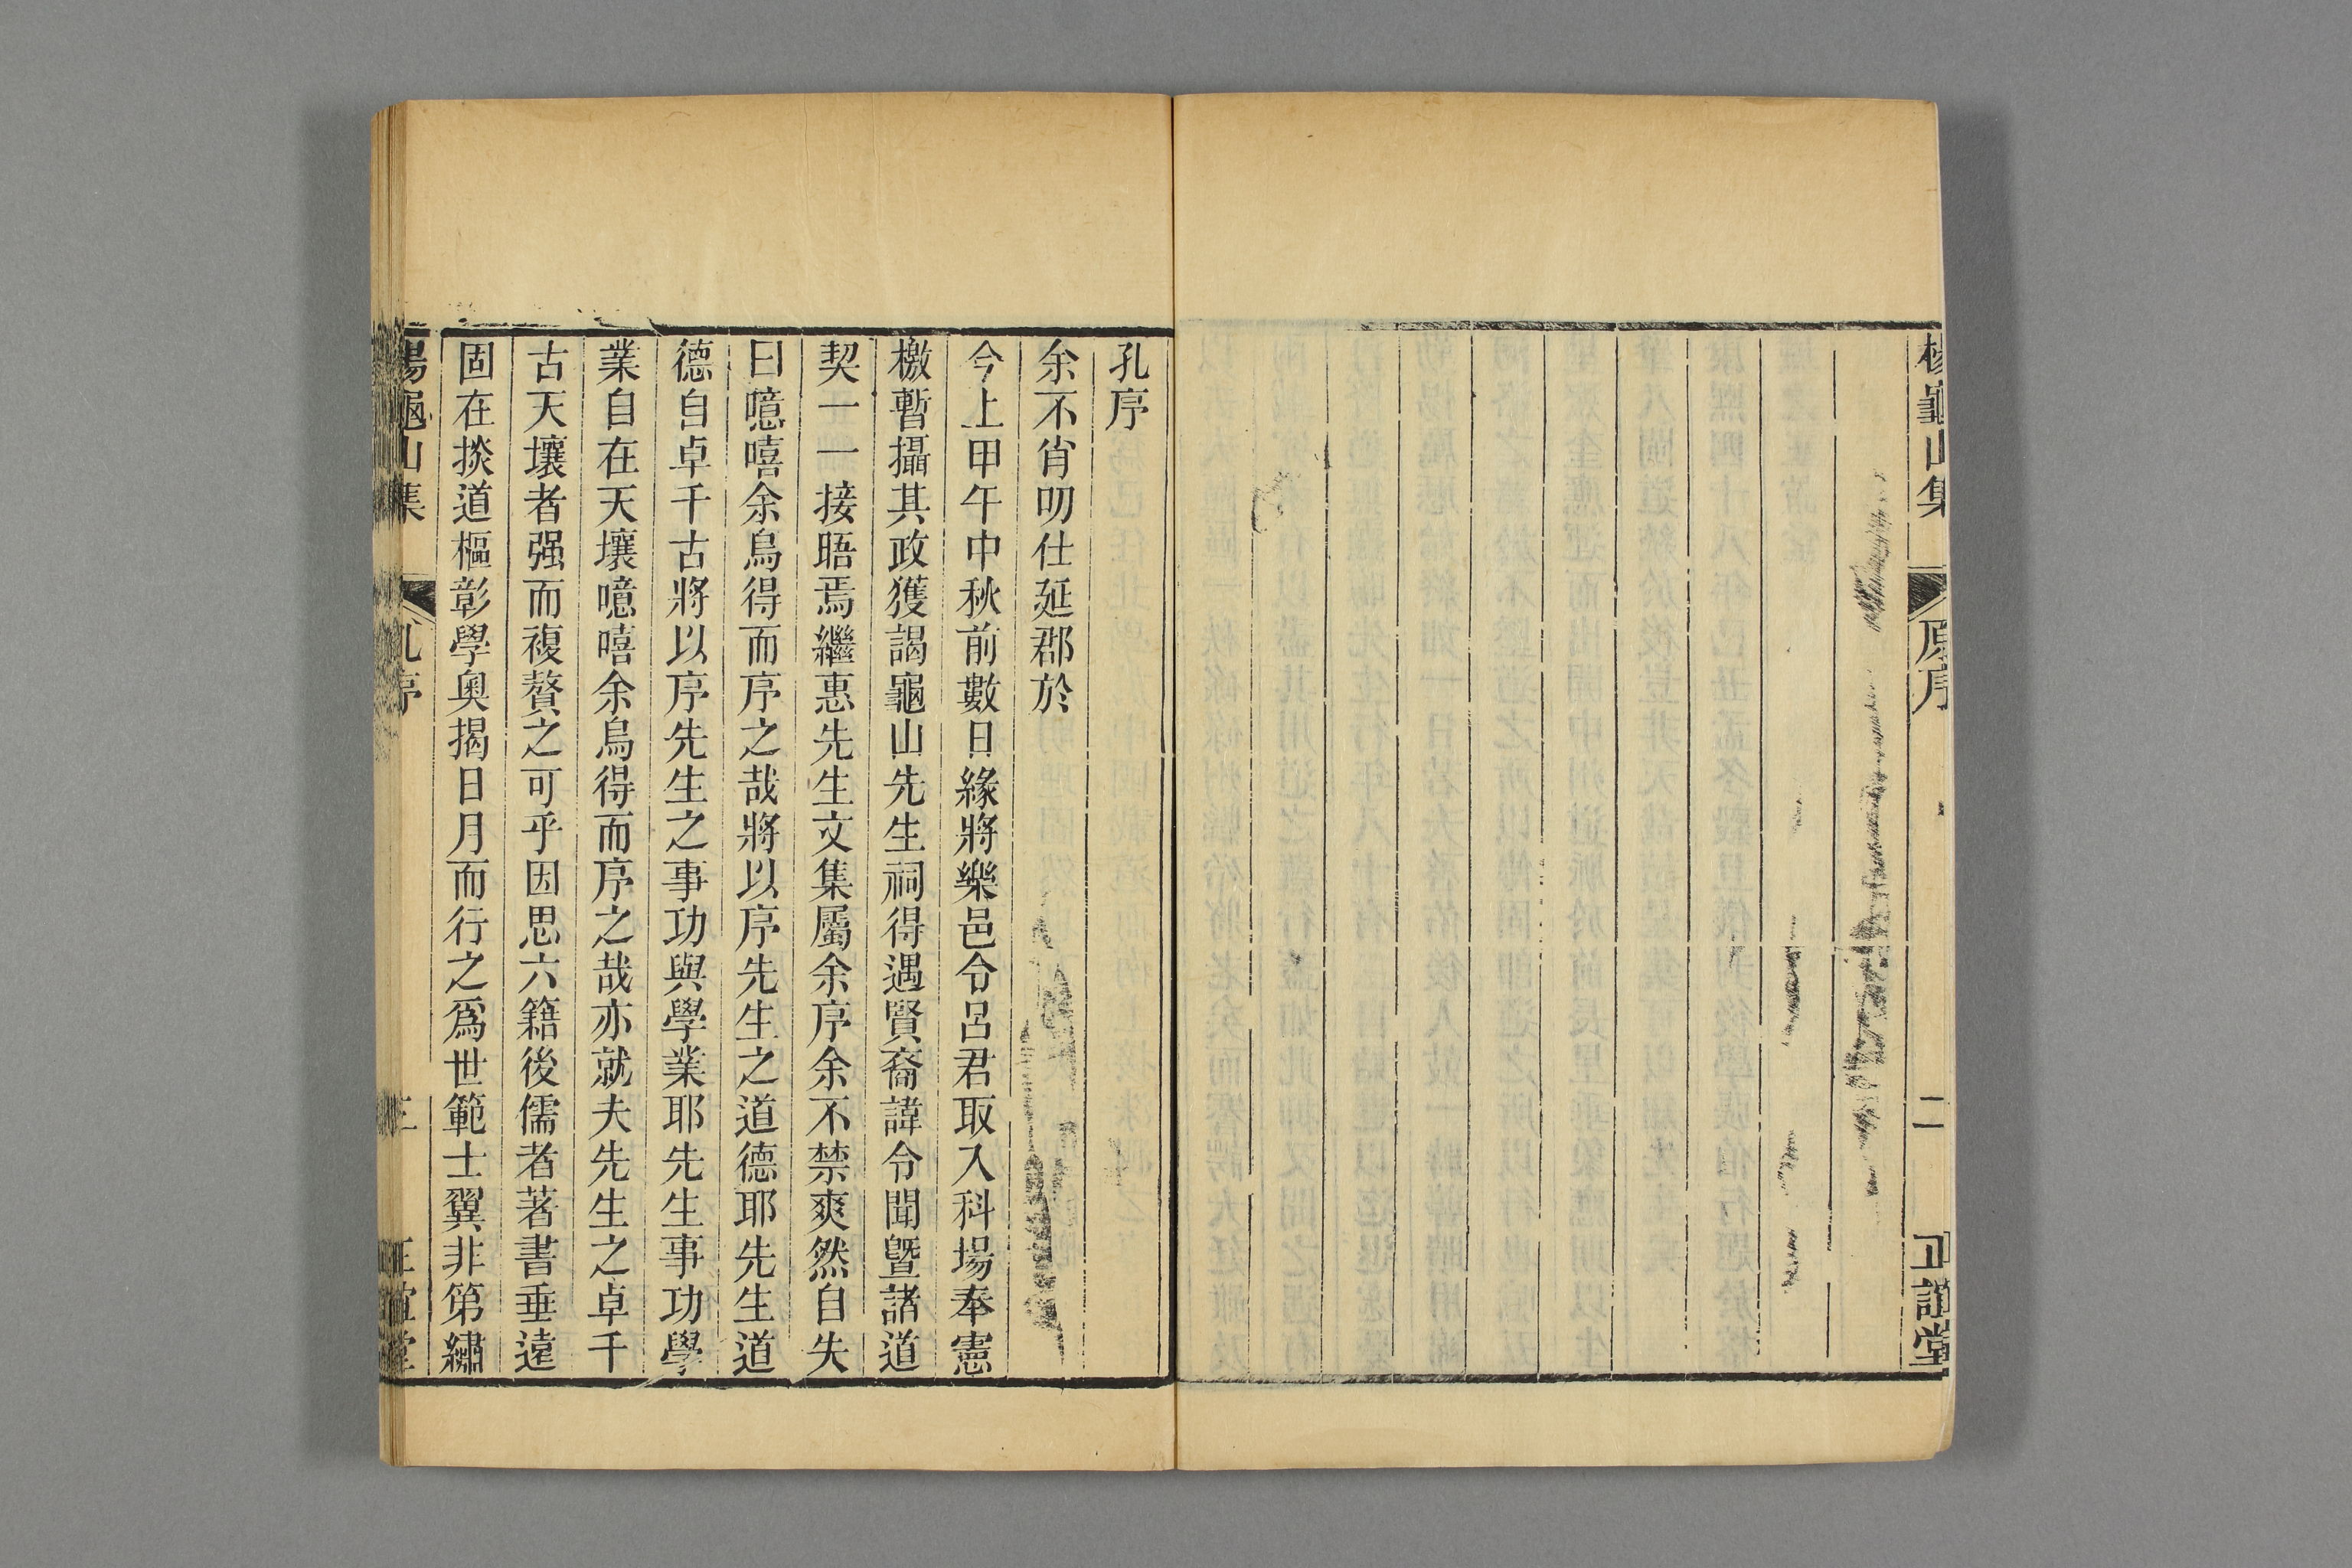 楊龜山集 原序 二 正誼堂
孔序
余不肖叨仕延郡於
今上甲午中秋前數日緣將樂邑令呂君取入科場奉憲
檄暫攝其政獲謁龜山先生祠得遇賢裔諱令聞曁諸道
契一一接晤焉繼惠先生文集屬余序余不禁爽然自失
曰噫嘻余烏得而序之哉將以序先生之道德耶先生道
德自卓千古將以序先生之事功與學業耶先生事功學
業自在天壤噫嘻余烏得而序之哉亦就夫先生之卓千
古天壤者强而複贅之可乎因思六籍後儒者著書垂遠
固在掞道樞彰學奥揭日月而行之爲世範士翼非第繡
楊龜山集 孔序 三 正誼堂